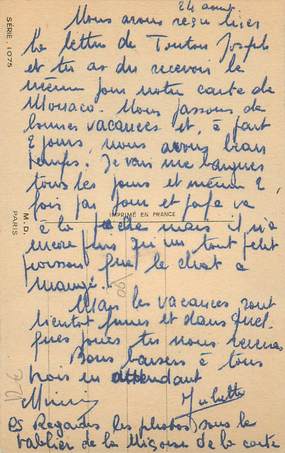 24 août
Nous avons reçu hier
la lettre de Tonton Joseph
et tu as du recevoir le
même jour notre carte de
Monaco. Nous passons de
bonnes vacances et, à part
2 jours, nous avons beau
temps. Je vais me baigner
tous les jours et même 2
fois par jour et papa va
à la pêche mais il n'a
encore pris qu'un tout petit
poisson que le chat a
mangé.
Mais les vacances sont
bientôt finies et dans quel
ques jours tu nous verras
Bons baisers à tous
trois en attendant
Juliette
PS Regardes les photos sous le
tablier de la Niçoise de la carte
SÉRIE. 1075
M. D.
PARIS
IMPRIMÉ EN FRANCE